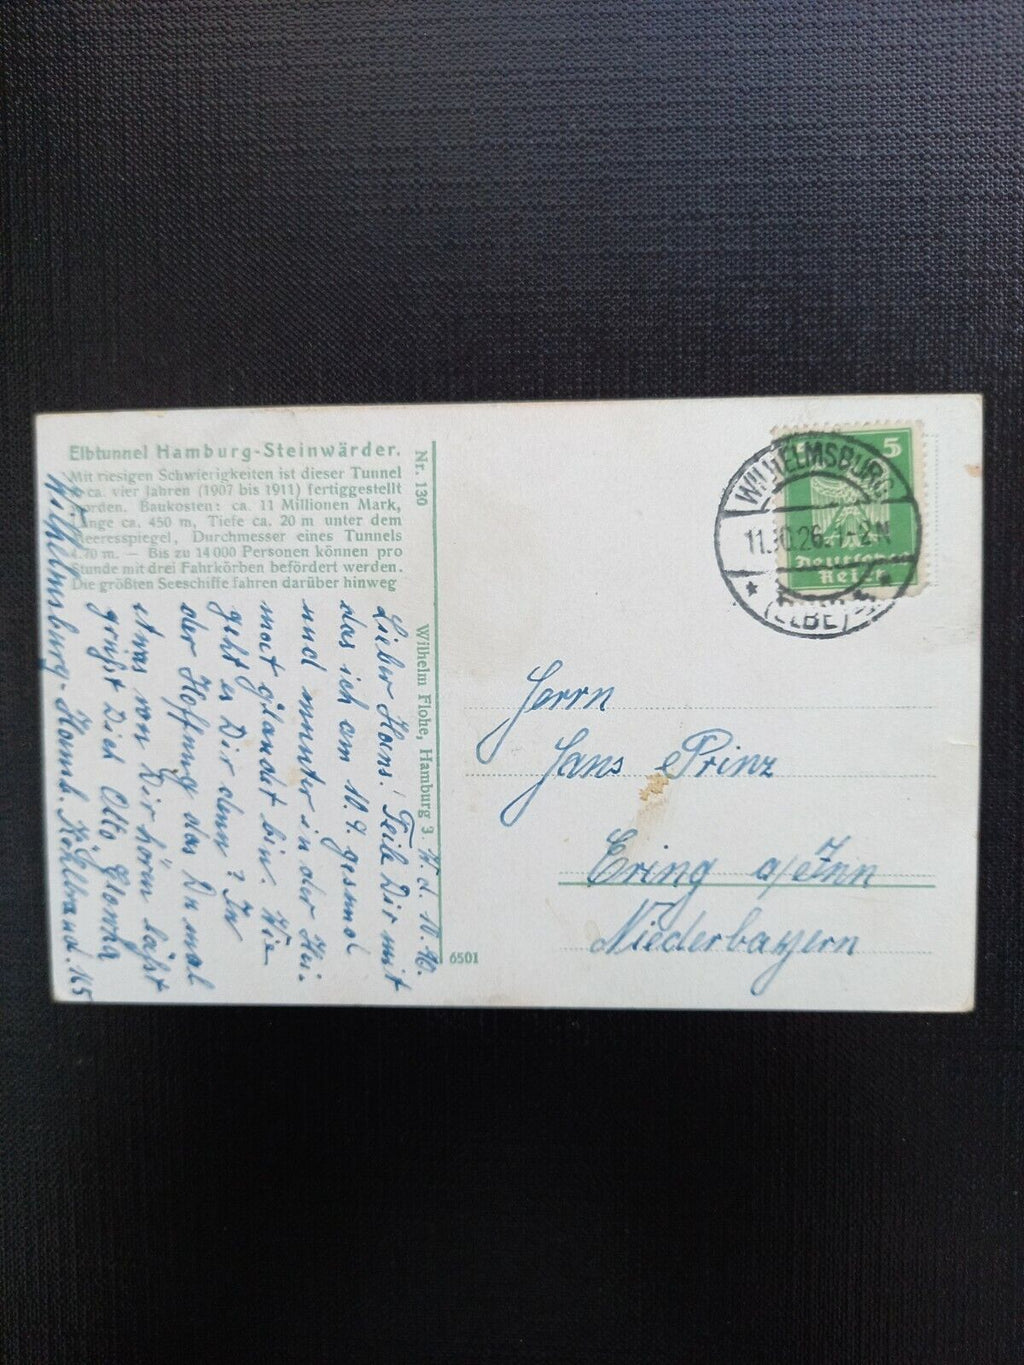 Elbtunnel Hamburg-Steinwärder.
Mit riesigen Schwierigkeiten ist dieser Tunnel
ca. vier Jahren (1907 bis 1911) fertiggestellt
worden. Baukosten: ca. 11 Millionen Mark,
Länge ca. 450 m, Tiefe ca. 20 m unter dem
Meeresspiegel, Durchmesser eines Tunnels
4.70 m. — Bis zu 14000 Personen können pro
Stunde mit drei Fahrkörben befördert werden.
Die größten Seeschiffe fahren darüber hinweg
Nr. 130
Wilhelm Flohe, Hamburg 3.
6501
10. 10.
Lieber Hans! Teile Dir mit
das ich am 10.9. gesund
und munter in der Hei-
mat gelandet bin. Wie
geht es Dir denn? In
der Hoffnung das Du mal
etwas von Dir hören läßt
grüßt Dich Otto
Wilhelmsburg-Hamb. Köhlbrand. 165
5
Deutsches
Reich
WILHELMSBURG
11.10.26. 1-2N
(ELBE)
Herrn
Hans Prinz
Ering a/Inn
Niederbayern